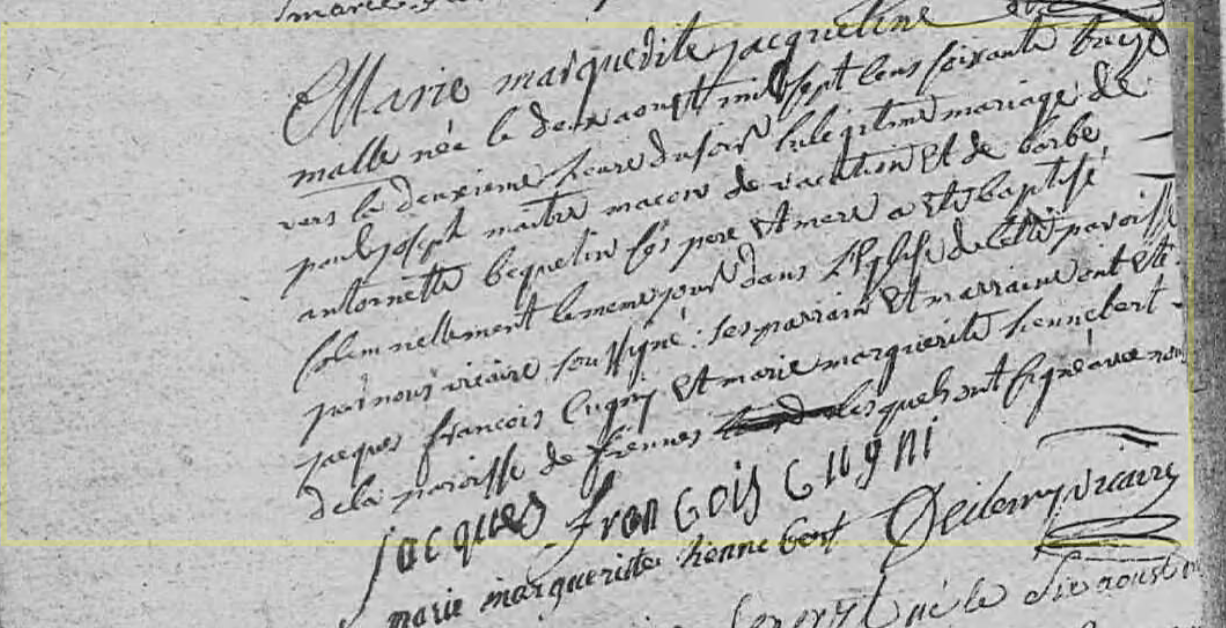 Marie marguerite jacqueline
malle née le deux aoust mil sept cens soixante treize
vers la deuxieme heure du soir du legitime mariage de
paul joseph maitre macon de vacation et de barbe
antoinette bequelin ses pere et mere a eté baptisé
solemnellement le meme jour dans l'Eglise de cette paroisse
par nous vicaire soussigné : ses parrain et marraine ont été
jacques francois Cugny et marie marguerite hennebert
de la paroisse de fiennes lesquels ont signé avec nous
jacques francois Cugni
marie marguerite hennebert vicaire
né le six aoust